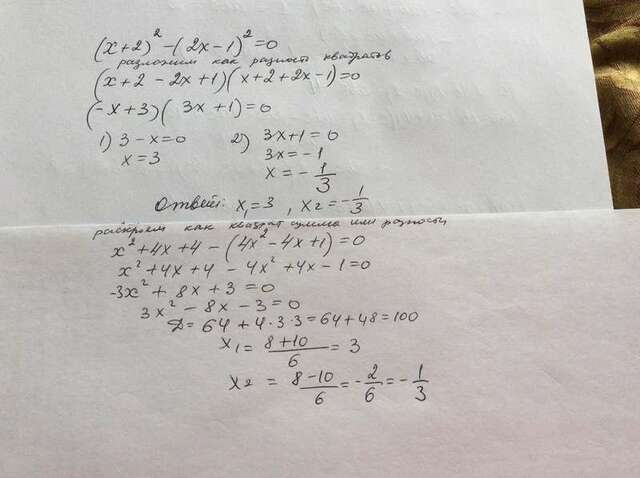 (x+2)² - (2x-1)² = 0
разложим как разность квадратов
(x+2-2x+1)(x+2+2x-1)=0
(-x+3)(3x+1)=0
1) 3-x=0 2) 3x+1=0
x=3 3x=-1
x=-1/3
Ответ: x₁=3, x₂=-1/3
раскроем как квадрат суммы или разности
x²+4x+4-(4x²-4x+1)=0
x²+4x+4-4x²+4x-1=0
-3x²+8x+3=0
3x²-8x-3=0
D=64+4·3·3=64+48=100
x₁=(8+10)/6=3
x₂=(8-10)/6=-2/6=-1/3